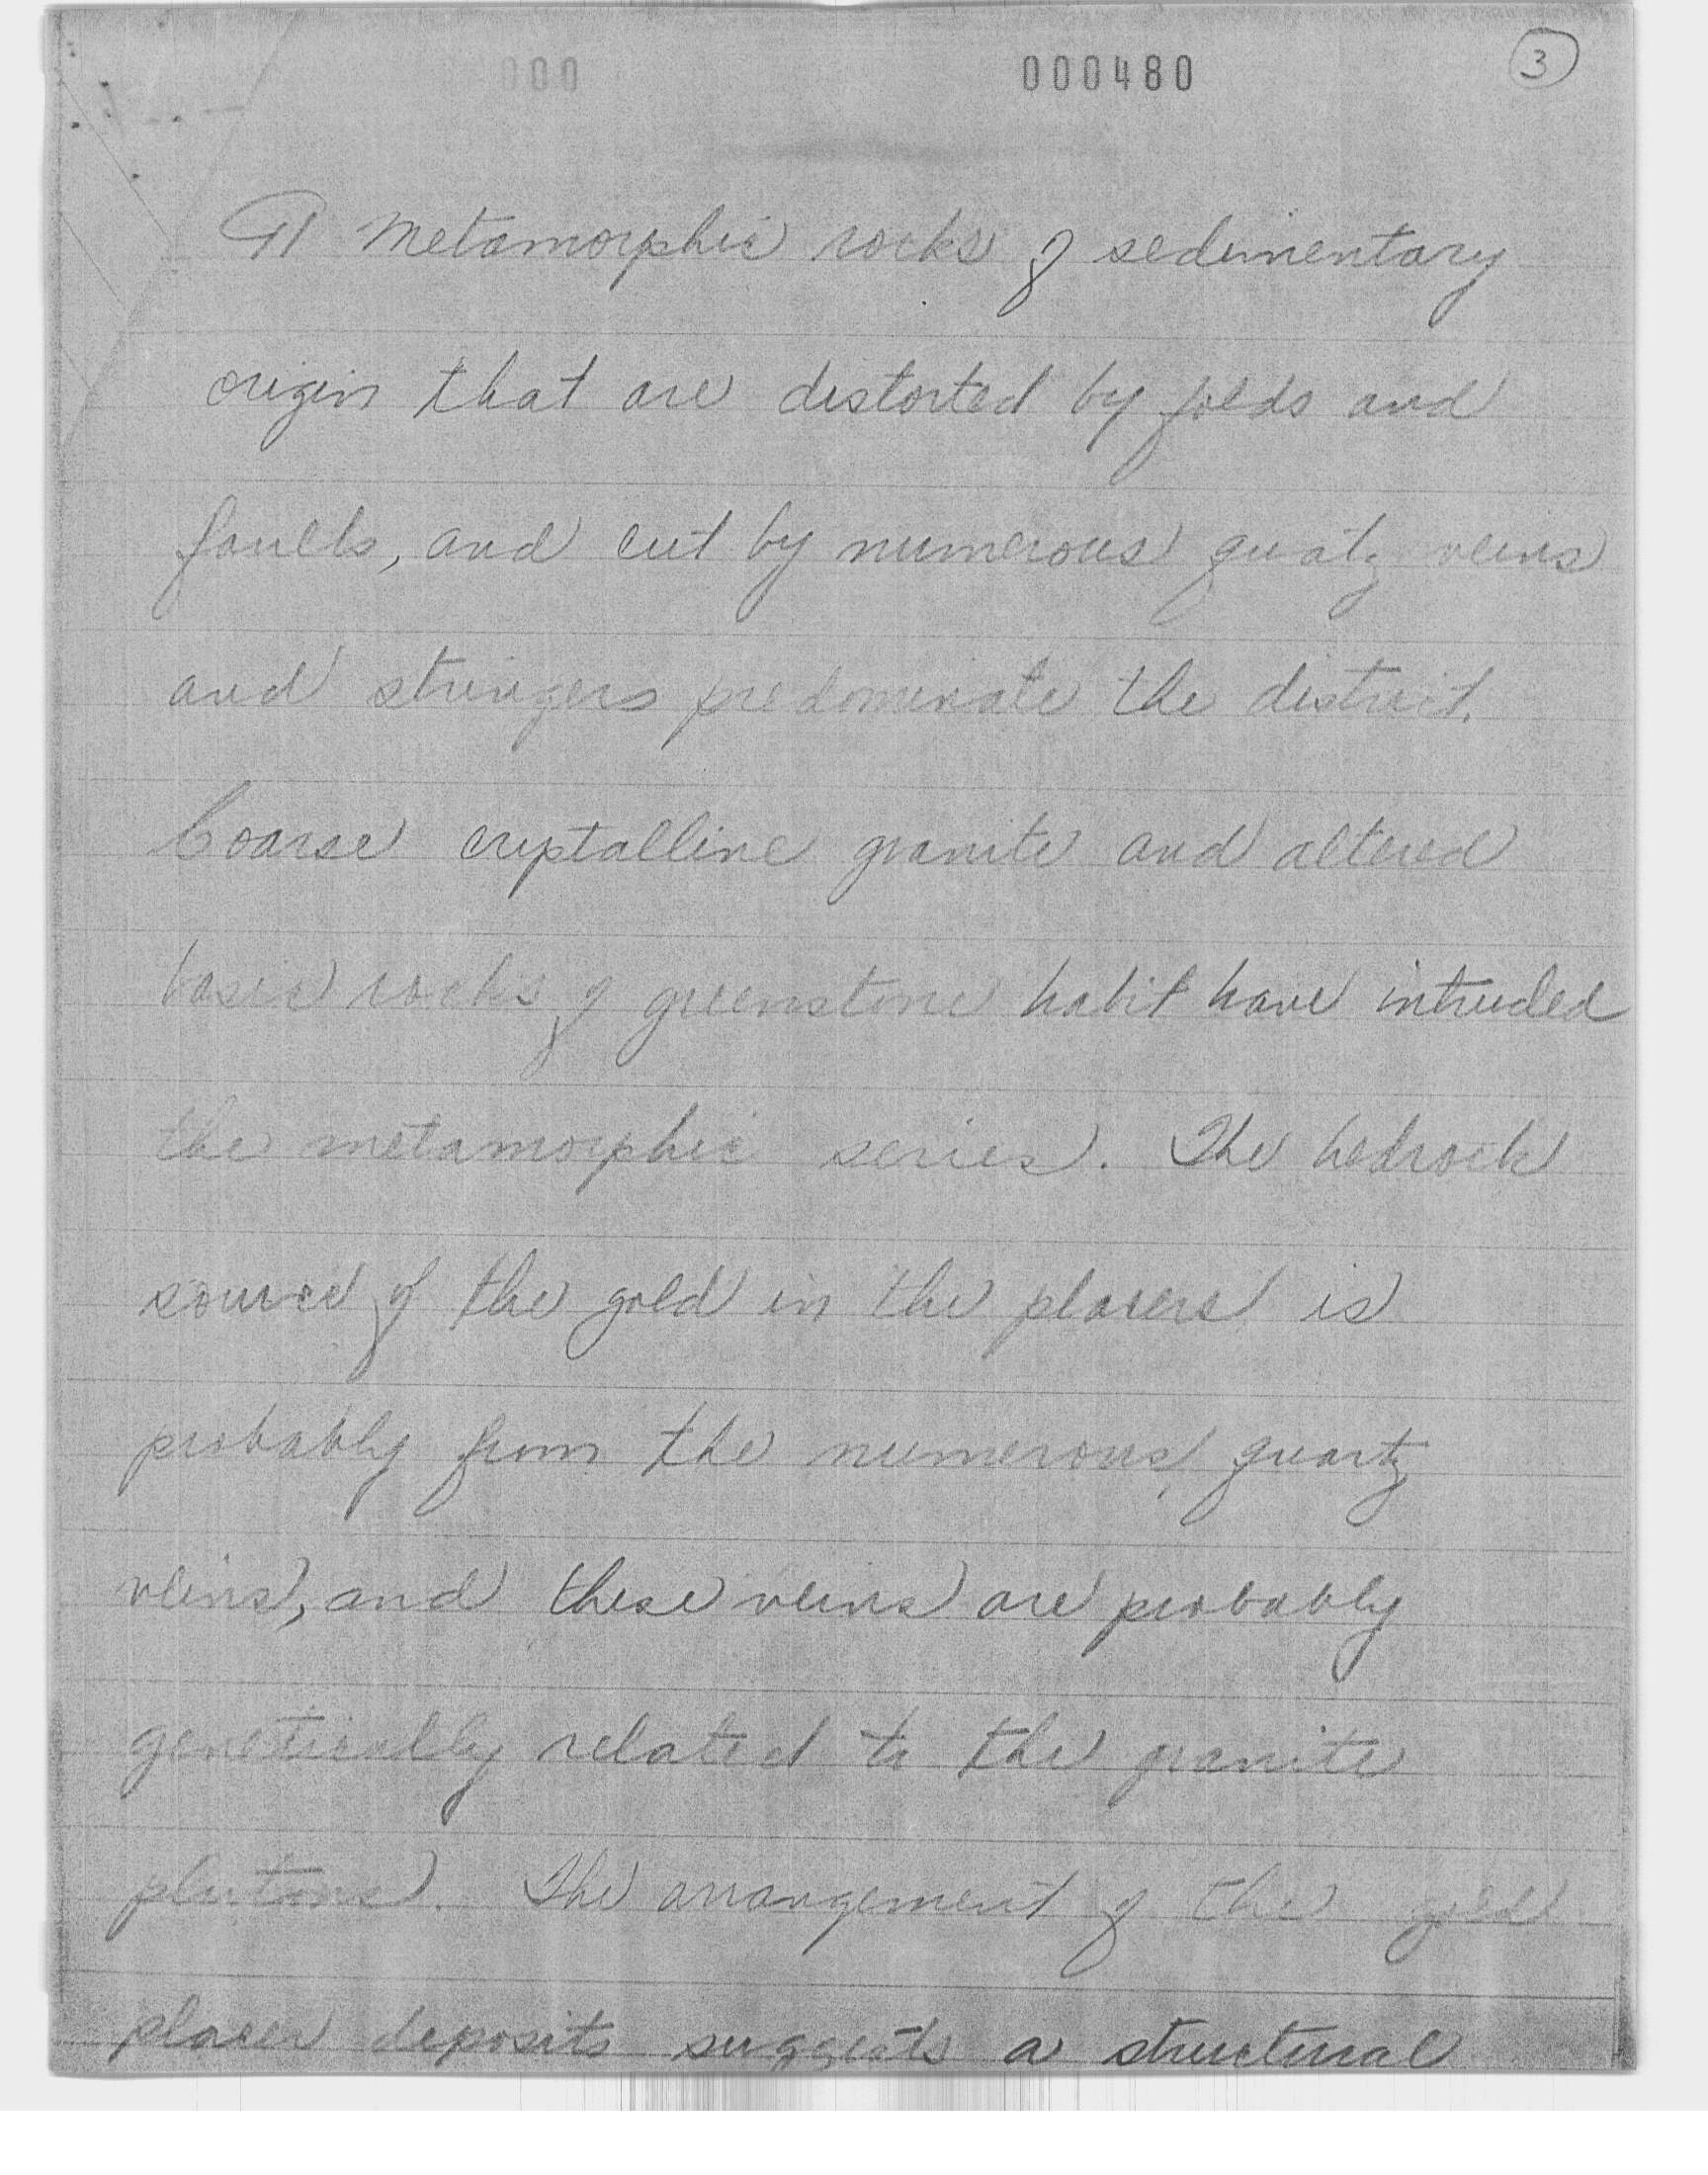 000 000480 3
¶ Metamorphic rocks of sedimentary
origin that are distorted by folds and
faults, and cut by numerous quatz veins
and stringers predominate the district.
Coarse cryptalline granite and altered
basic rocks of greenstone habit have intruded
the metamorphic series. The bedrock
source of the gold in the placers is
probably from the numerous quartz
veins, and these veins are probably
genetically related to the granite
plutons. The arrangement of the gold
placer deposits suggests a structural